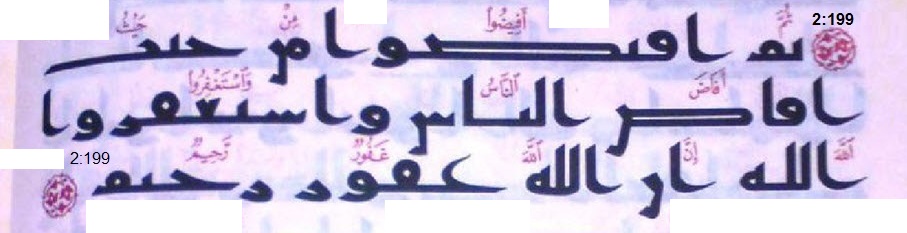 ثُمَّ أَفِيضُوا مِنْ حَيْثُ 2:199
ثم افيضوا من حيث
أَفَاضَ ٱلنَّاسُ وَٱسْتَغْفِرُوا
افاض الناس واستغفروا
ٱللَّهَ إِنَّ ٱللَّهَ غَفُورٌ رَّحِيمٌ 2:199
الله ان الله غفور رحيم